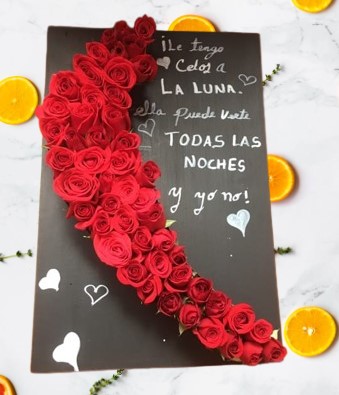 ¡Le tengo
Celos a
LA LUNA.
ella puede verte
TODAS LAS
NOCHES
Y yo no!